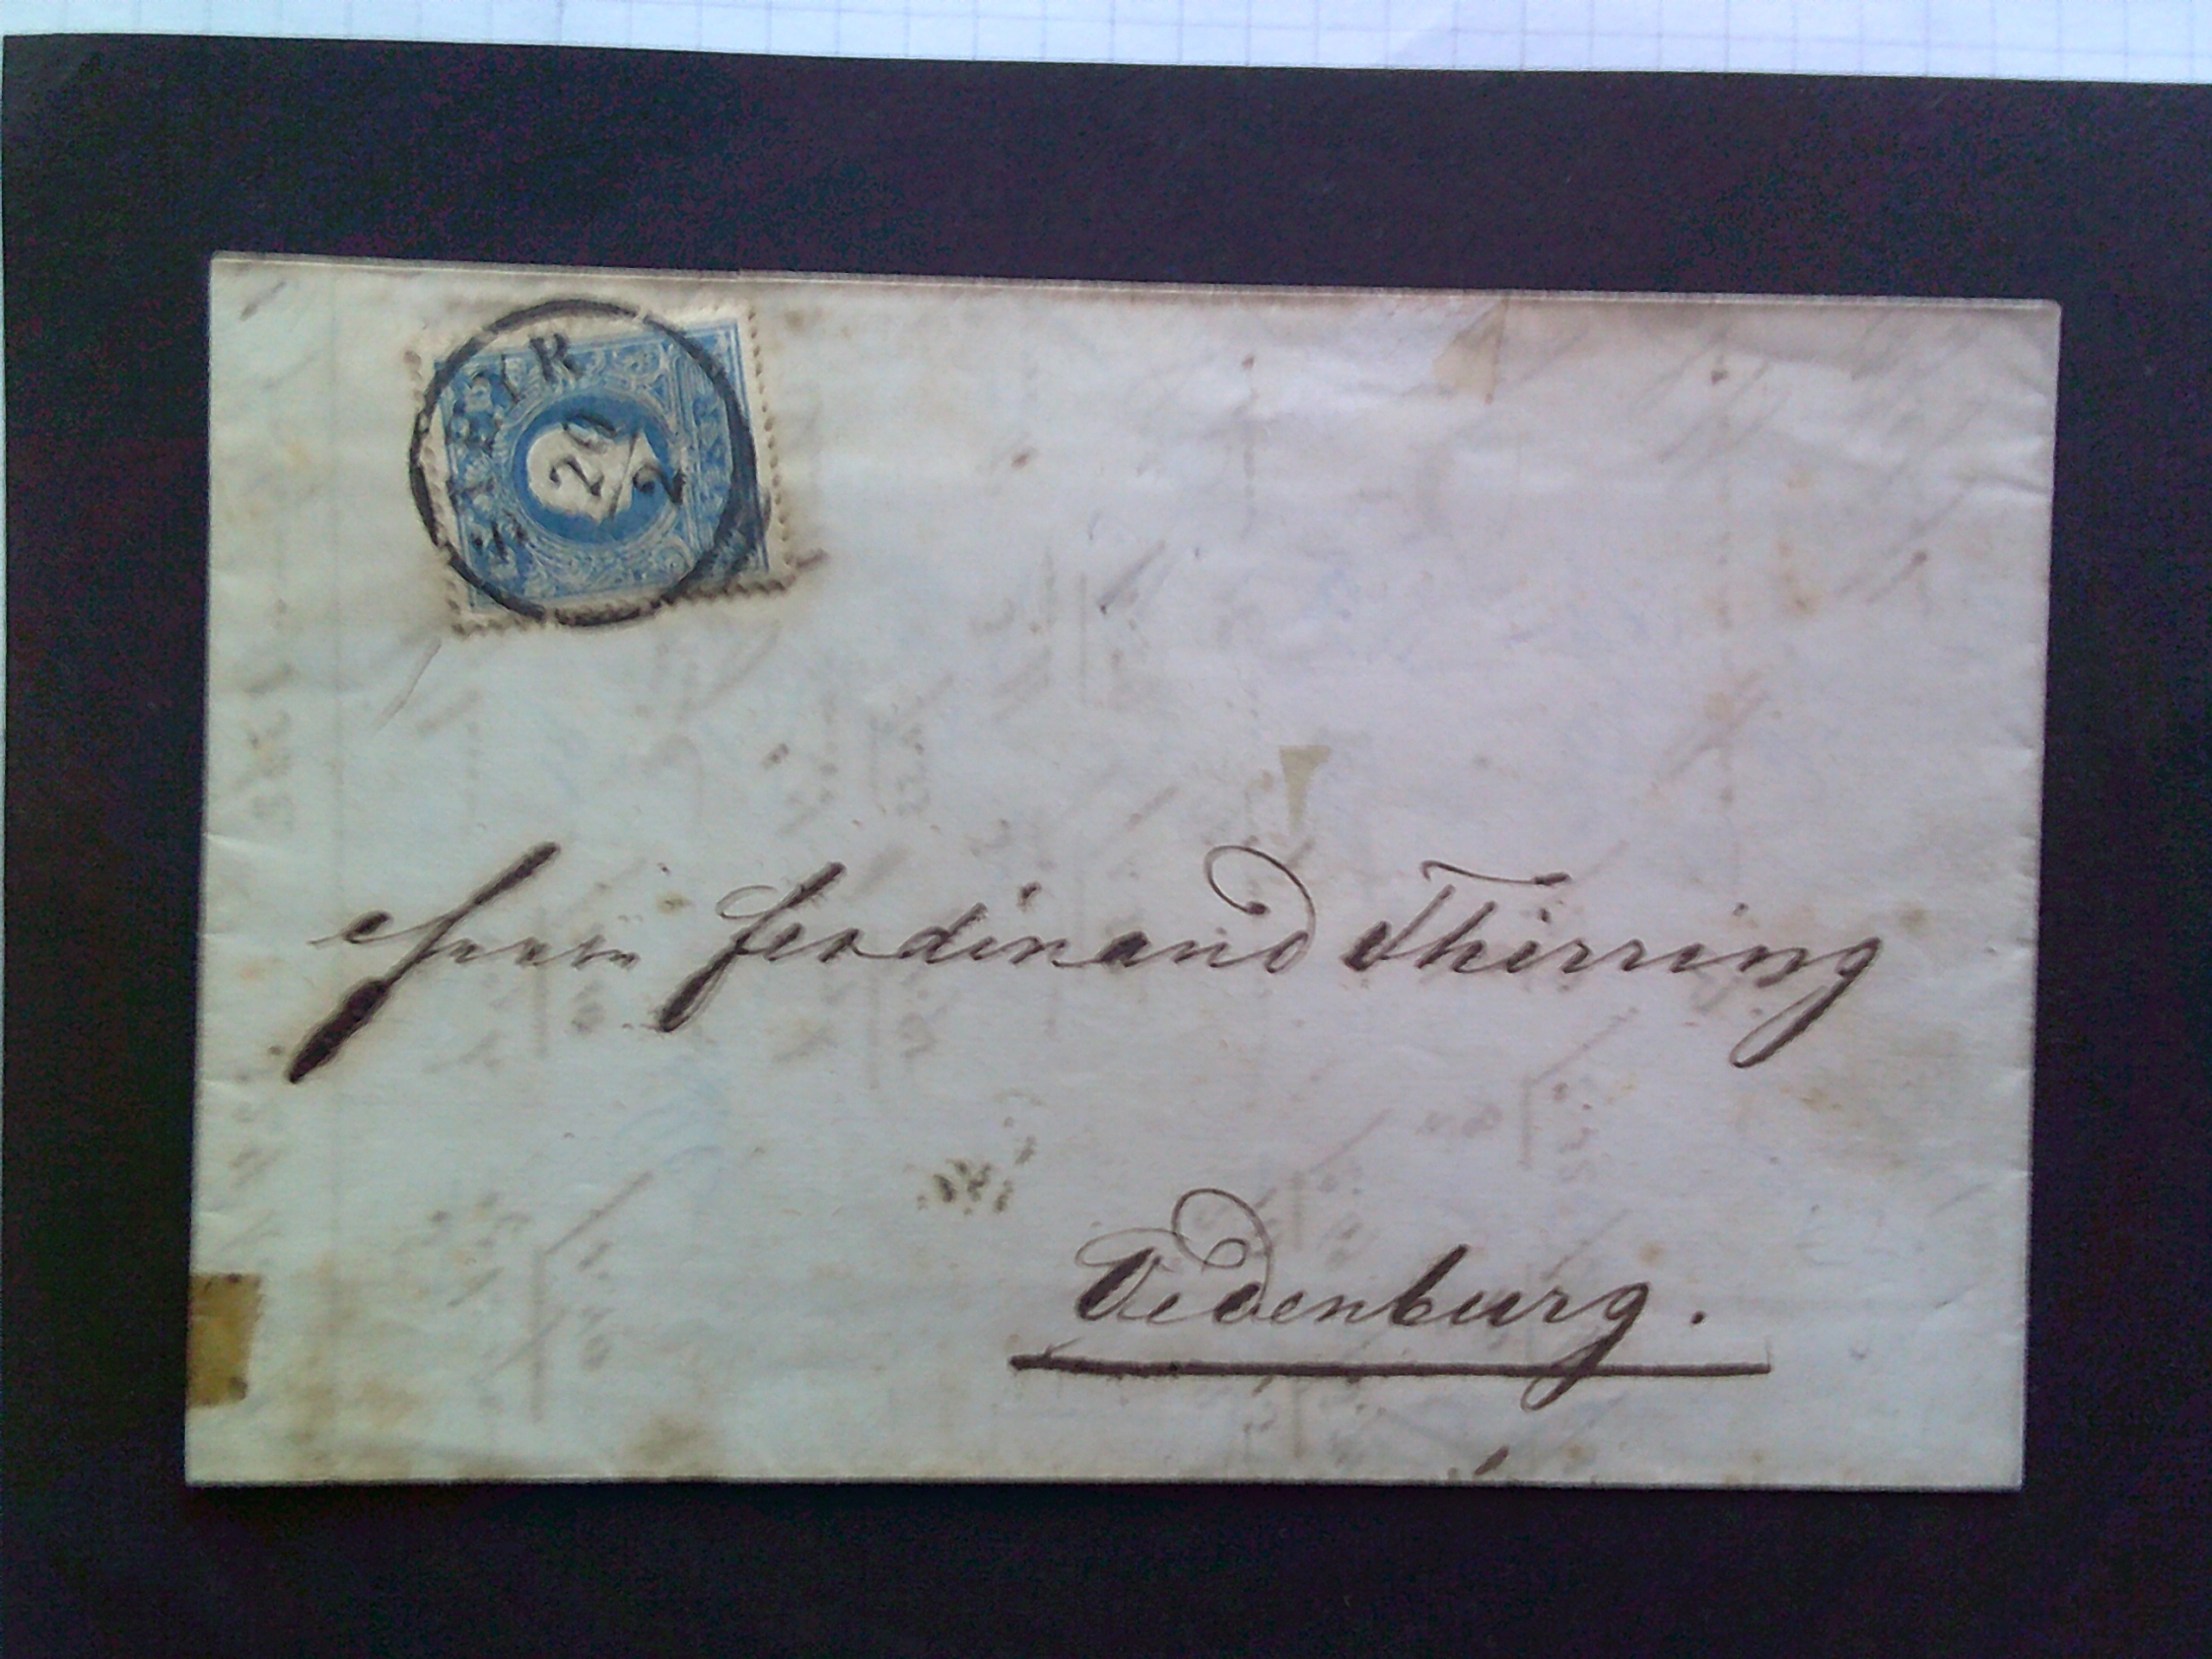 STEYR
20
2
Herrn Ferdinand Thirring
Oedenburg.